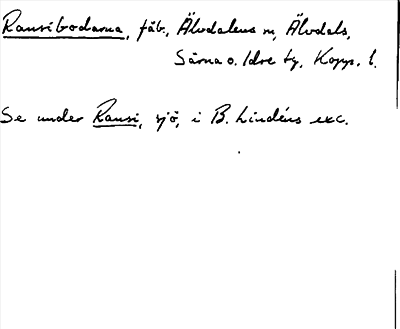 Ransibodarna, fäb., Älvdalens sn, Älvdals,
Särna o. Idre tg, Kopp. l.
Se under Ransi, sjö, i B. Lindéns exc.